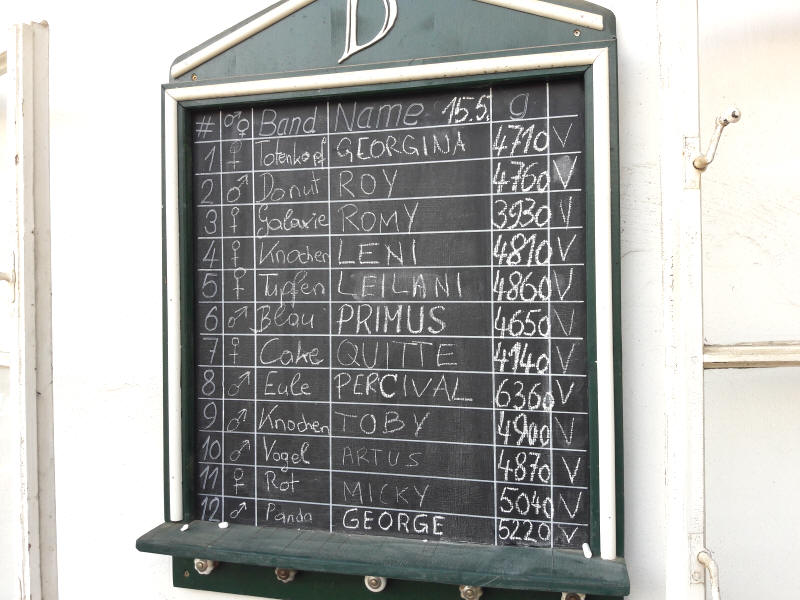 D
# ♂♀ Band Name 15.5. g
1 ♀ Totenkopf GEORGINA 4710 V
2 ♂ Donut ROY 4760 V
3 ♀ Galaxie ROMY 3930 V
4 ♀ Knochen LENI 4810 V
5 ♀ Tupfen LEILANI 4860 V
6 ♂ Blau PRIMUS 4650 V
7 ♀ Cake QUITTE 4140 V
8 ♂ Eule PERCIVAL 6360 V
9 ♂ Knochen TOBY 4900 V
10 ♂ Vogel ARTUS 4870 V
11 ♀ Rot MICKY 5040 V
12 ♂ Panda GEORGE 5220 V